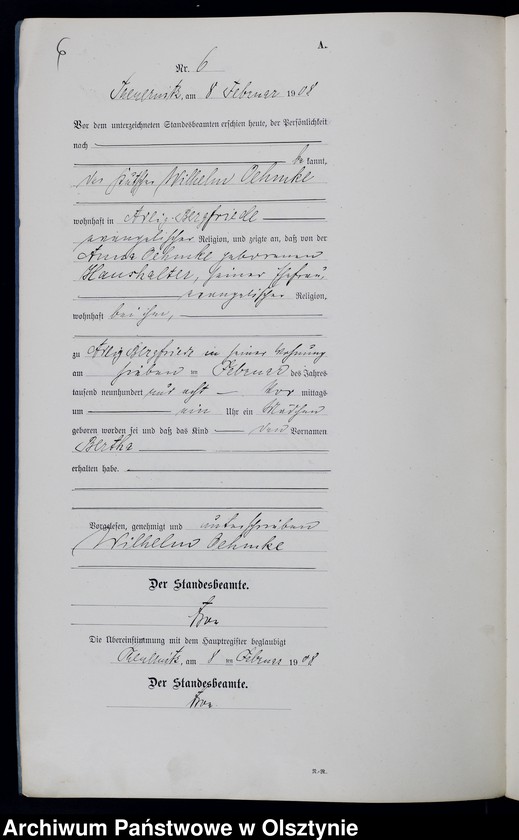 6
A.
Nr. 6
am 8 Februar 1908
Vor dem unterzeichneten Standesbeamten erschien heute, der Persönlichkeit
nach
be kannt,
der Kutscher Wilhelm Oehmke
wohnhaft in Adlig Bergfriede
evangelischer Religion, und zeigte an, daß von der
Anna Oehmke geborenen
Haushalter, seiner Ehefrau,
evangelischer Religion,
wohnhaft bei ihm,
zu Adlig Bergfriede in seiner Wohnung
am sieben ten Februar des Jahres
tausend neunhundert und acht Vor mittags
um ein Uhr ein Mädchen
geboren worden sei und daß das Kind den Vornamen
Bertha
erhalten habe.
Vorgelesen, genehmigt und unterschrieben
Wilhelm Oehmke
Der Standesbeamte.
Die Übereinstimmung mit dem Hauptregister beglaubigt
am 8 ten Februar 1908
Der Standesbeamte.
Archiwum Państwowe w Olsztynie